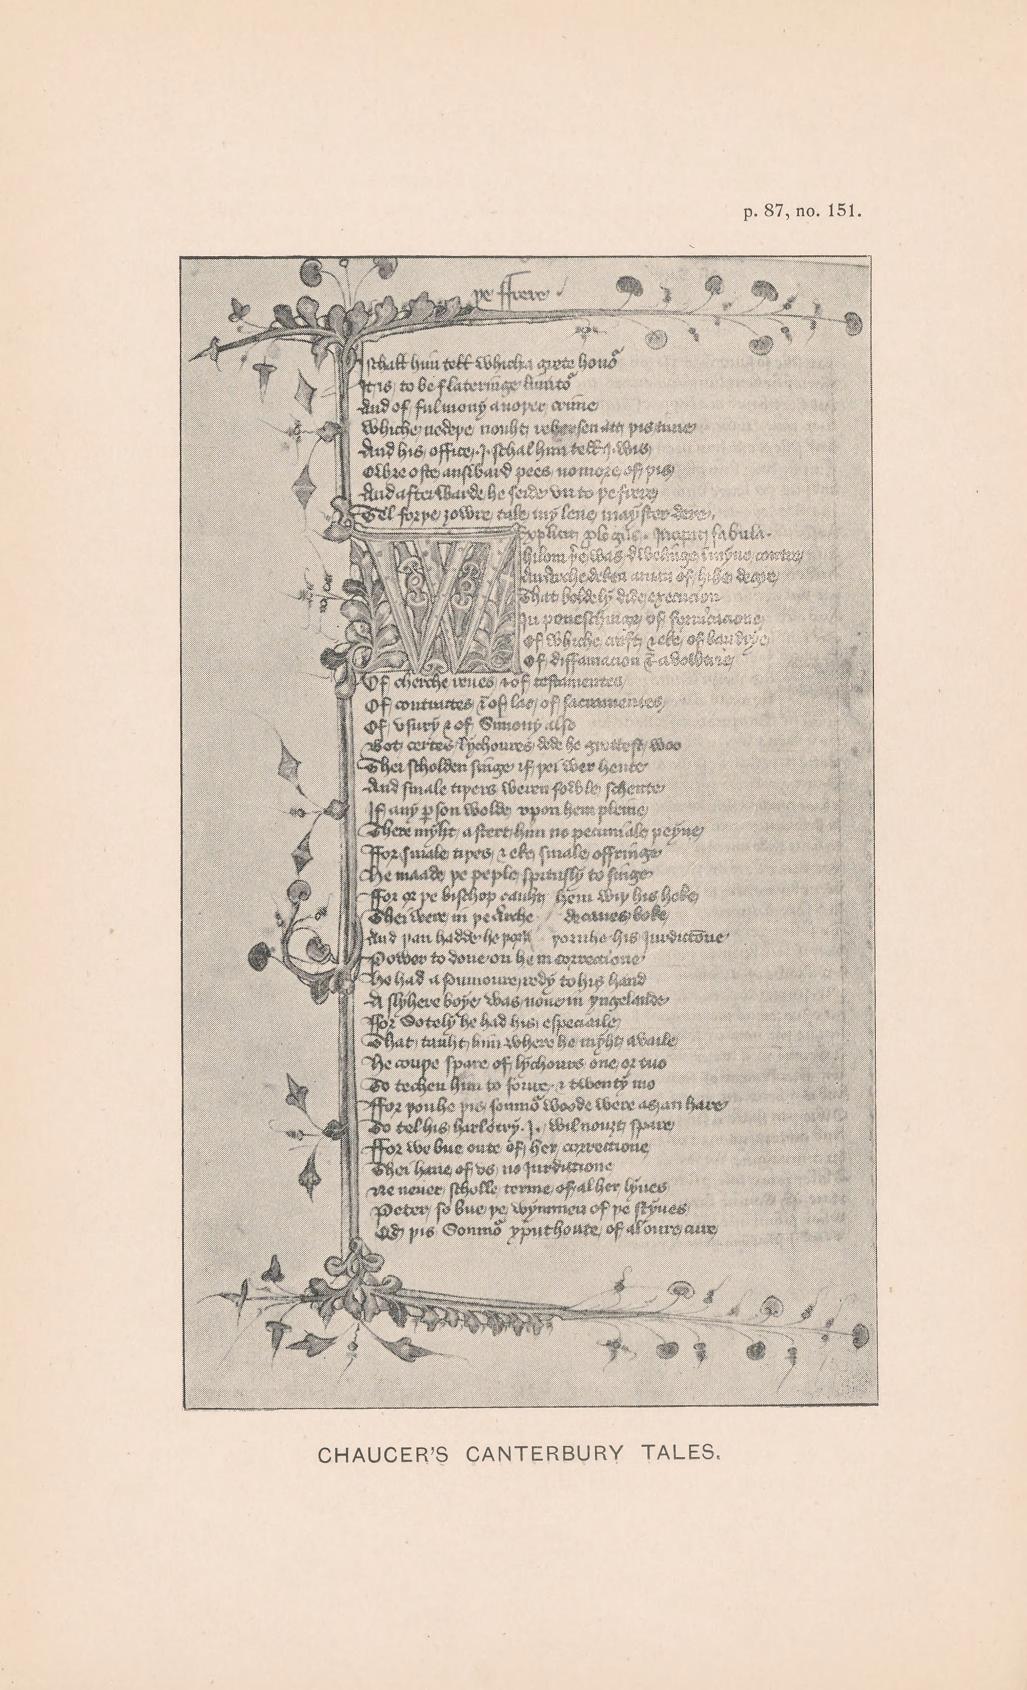 p. 87, no. 151.
þe ffrere
I schall him tell whiche a grete honor
It is to be flateringe limitor
And of ful mony anoþer crime
Whiche nedeþe nouht rehersen att þis time
And his office .I. schal him tell .I. wis
Owre oste answard pees no more of þis
And afterwarde he seide vn to þe frere
Tel forþe ȝowre tale my leue mayster dere.
Explicit plogus. Incipit fabula.
Whilom þe was dwelinge in myne
An of hihe degre
That boldely dide execucion
In poneschinge of fornicacione
Of wiche craft & eke of baudrye
Of diffamacion & avowtrie
Of cherche reues & of testamentes
Of contractes & of lac of sacramentes
Of vsury & of Simony also
Bot certes lychoures dede he grettest woo
Thei scholden singe if þei wer hente
And smale tiþers weren fowle schente
If any pson wolde vpon hem pleine
There myht astert him no pecuniale peyne
Ffor smale tiþes & eke smale offringe
He maade þe peple spitusly to singe
Ffor or þe bischop cauht hem wiþ his hoke
Thei were in þe deknes boke
And þan hadde he his Jurdiccone
Power to done on hem correccione
He had a Somoure redy to his hand
A slyhere boye was none in yngelande
Ffor Sotely he had his especiaile
That tauht him where he myht availe
He couþe spare of lychours one or tuo
To techen him to foure & twenty mo
Ffor þouhe þis somnor woode were as an hare
To tel his harlotry .I. wil nouht spare
Ffor we bue oute of her correccione
Thei haue of vs no Jurdiccione
Ne neuer scholle terme of al her lyues
Peter so bue þe wymmen of þe styues
Qd þis Somnor yputhoute of al oure cure
CHAUCER'S CANTERBURY TALES.